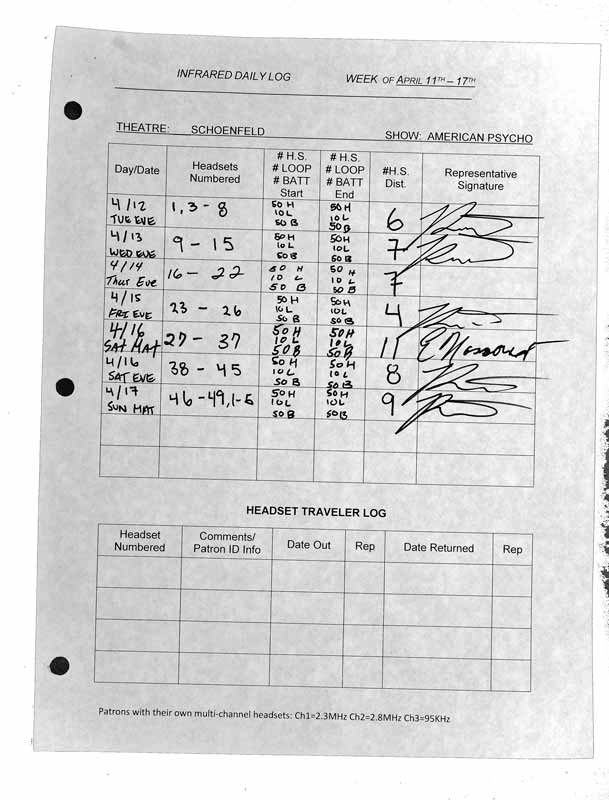 INFRARED DAILY LOG WEEK OF APRIL 11TH – 17TH
THEATRE: SCHOENFELD SHOW: AMERICAN PSYCHO
Day/Date Headsets Numbered # H.S. # LOOP # BATT Start # H.S. # LOOP # BATT End #H.S. Dist. Representative Signature
4/12 TUE EVE 1, 3 - 8 50 H 10 L 50 B 50 H 10 L 50 B 6
4/13 WED EVE 9 - 15 50 H 10 L 50 B 50 H 10 L 50 B 7
4/14 Thur Eve 16 - 22 50 H 10 L 50 B 50 H 10 L 50 B 7
4/15 FRI EVE 23 - 26 50 H 10 L 50 B 50 H 10 L 50 B 4
4/16 SAT MAT 27 - 37 50 H 10 L 50 B 50 H 10 L 50 B 11
4/16 SAT EVE 38 - 45 50 H 10 L 50 B 50 H 10 L 50 B 8
4/17 SUN MAT 46 - 49, 1-5 50 H 10 L 50 B 50 H 10 L 50 B 9
HEADSET TRAVELER LOG
Headset Numbered Comments/ Patron ID Info Date Out Rep Date Returned Rep
Patrons with their own multi-channel headsets: Ch1=2.3MHz Ch2=2.8MHz Ch3=95KHz